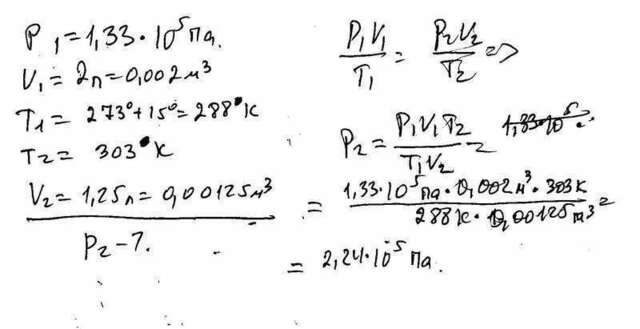 P₁ = 1,33 · 10⁵ Па.
V₁ = 2л = 0,002 м³
T₁ = 273° + 15° = 288° К
T₂ = 303° К
V₂ = 1,25л = 0,00125 м³
P₂ - ?.
P₁V₁/T₁ = P₂V₂/T₂ =>
P₂ = P₁V₁T₂/T₁V₂ =
= 1,33 · 10⁵ Па · 0,002 м³ · 303 К / 288 К · 0,00125 м³ =
= 2,24 · 10⁵ Па.